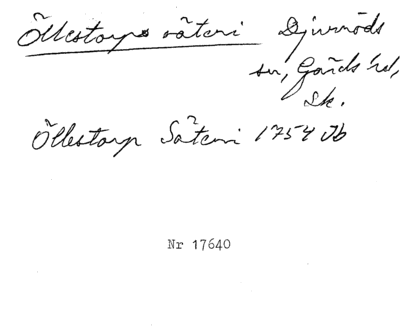 Öllestorps säteri Djurröds
sn, Gärds hd,
Sk.
Öllestorp Säteri 1754 Jb
Nr 17640